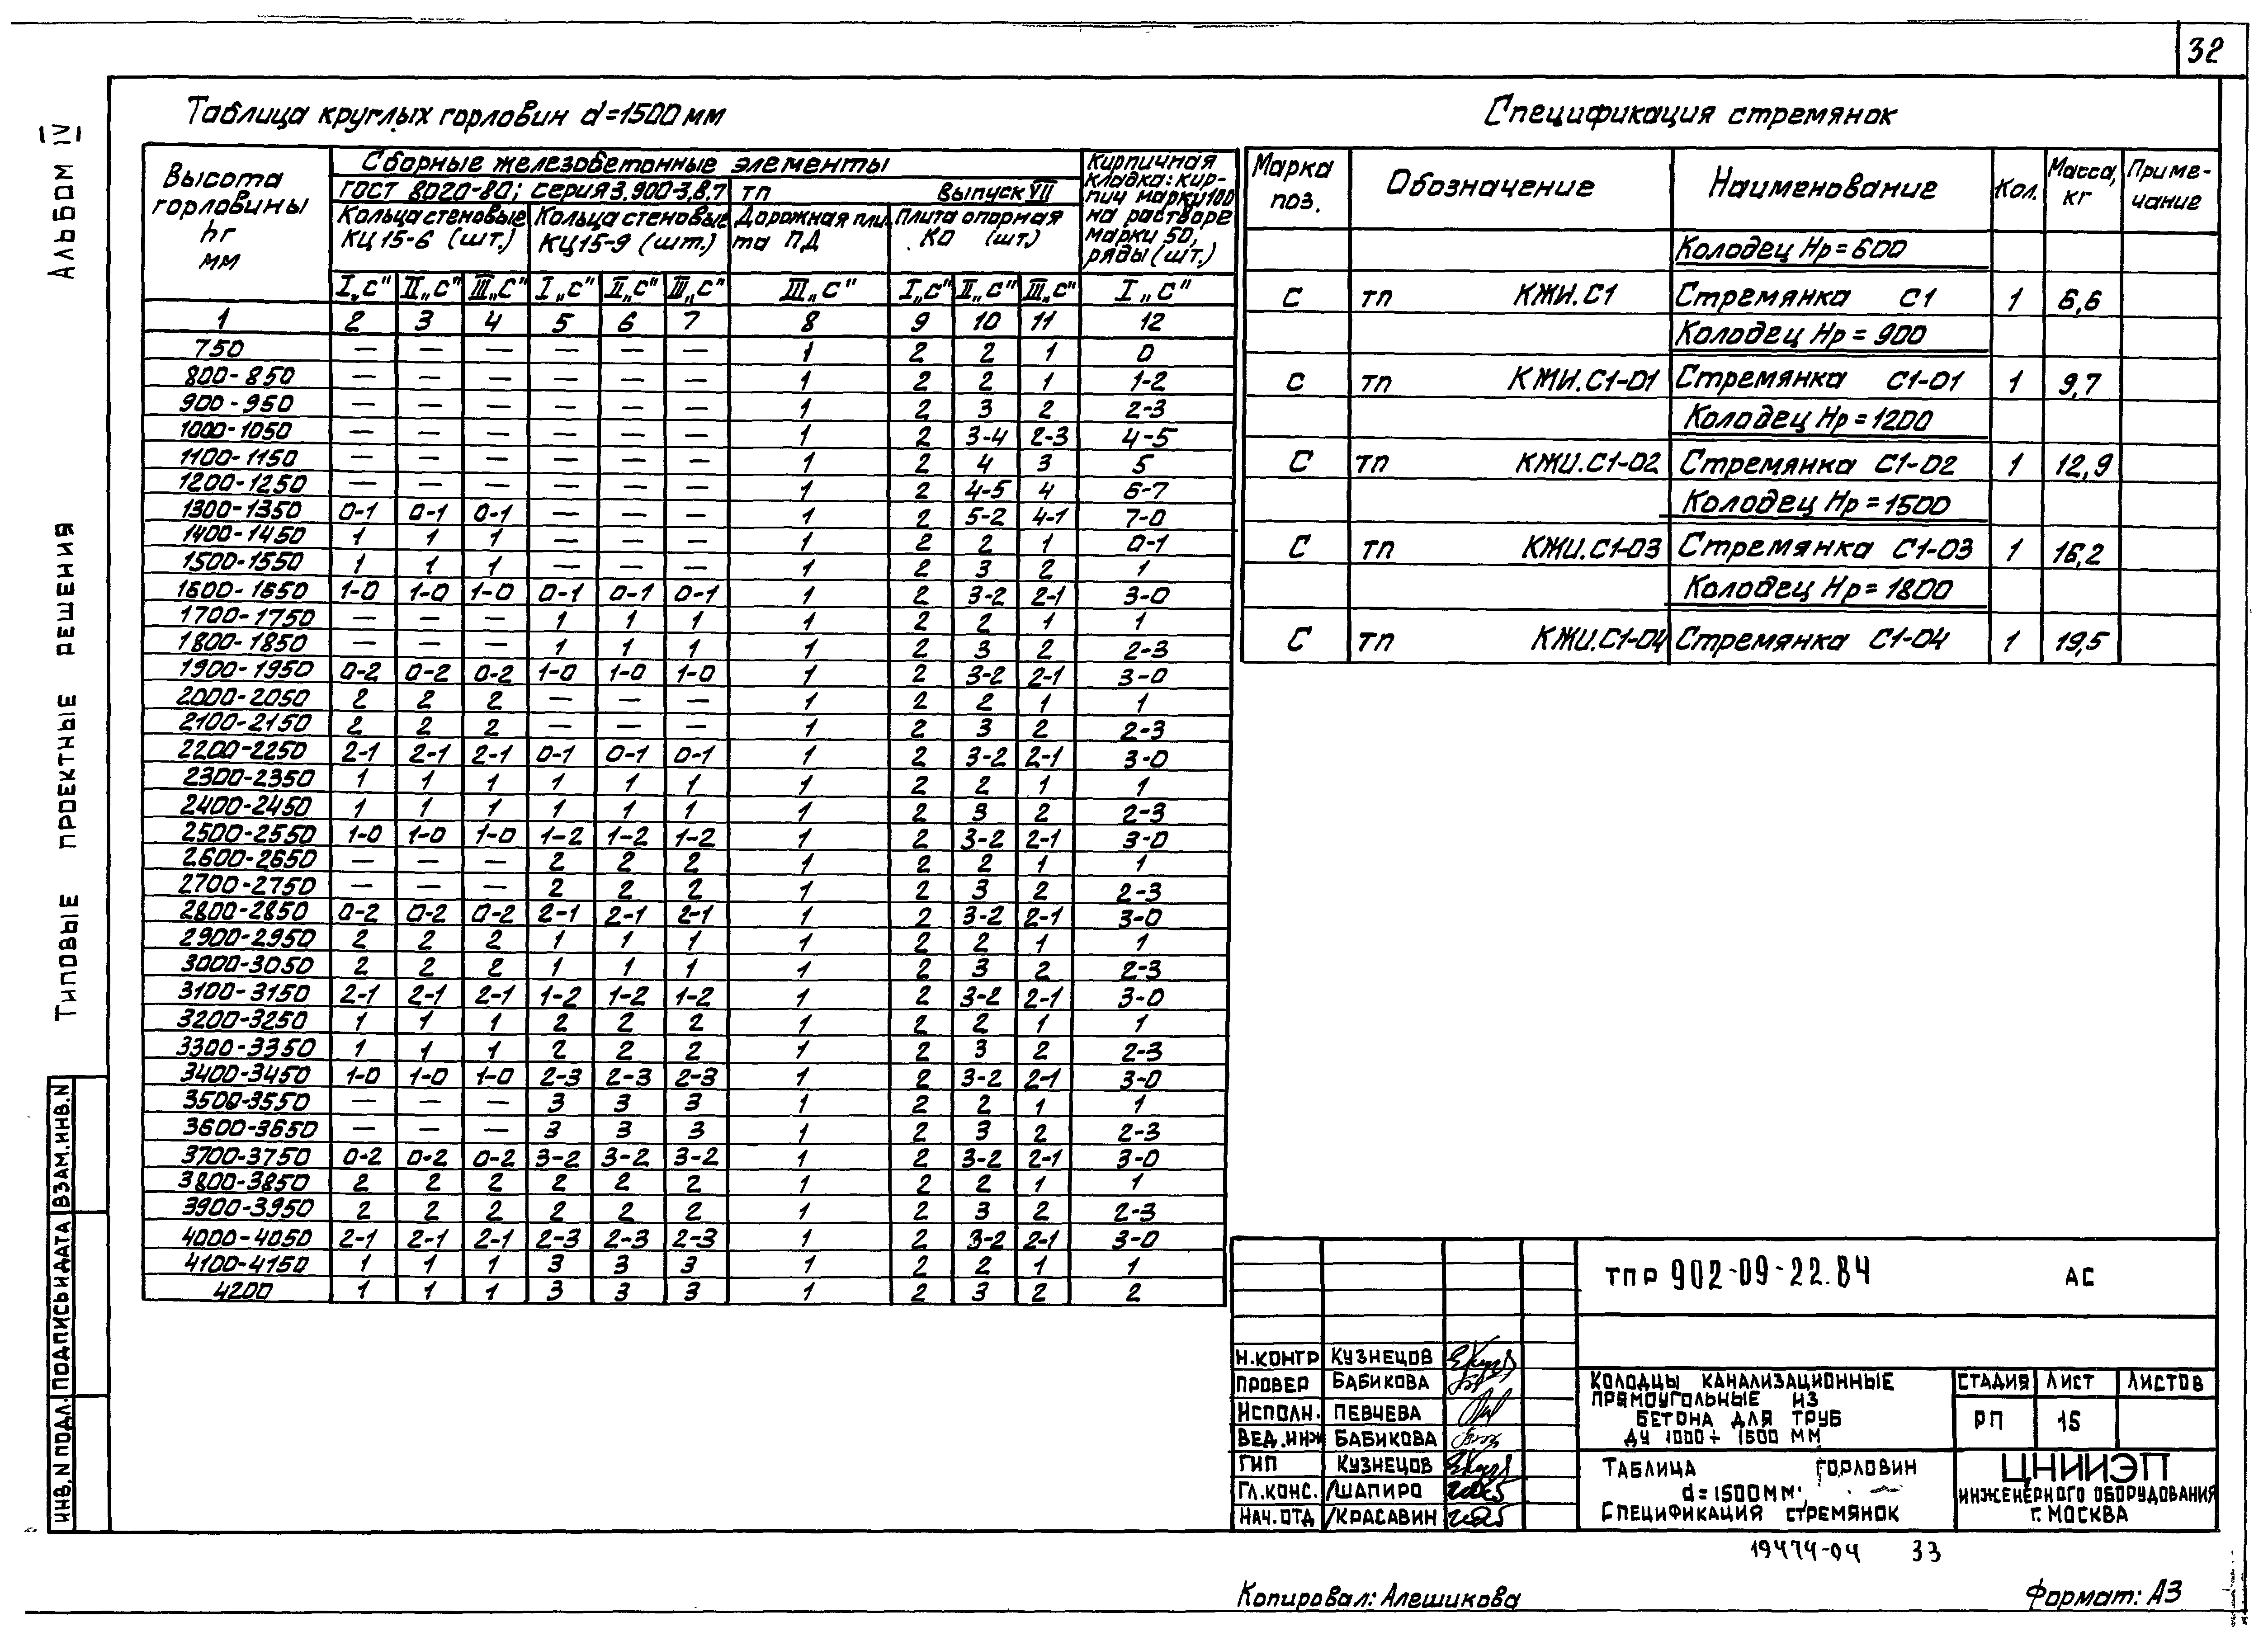 32
Альбом IV
Типовые проектные решения
Таблица круглых горловин d=1500 мм
Высота горловины hг мм
Сборные железобетонные элементы
ГОСТ 8020-80; серия 3.900-3, в.7
ТП Выпуск VII
Кольца стеновые КЦ 15-6 (шт.)
Кольца стеновые КЦ 15-9 (шт.)
Дорожная плита ПД
Плита опорная КО (шт.)
Кирпичная кладка: кирпич марки 100 на растворе марки 50, ряды (шт.)
I„С" II„С" III„С" I„С" II„С" III„С" III„С" I„С" II„С" III„С" I„С"
1 2 3 4 5 6 7 8 9 10 11 12
750 — — — — — — 1 2 2 1 0
800-850 — — — — — — 1 2 2 1 1-2
900-950 — — — — — — 1 2 3 2 2-3
1000-1050 — — — — — — 1 2 3-4 2-3 4-5
1100-1150 — — — — — — 1 2 4 3 5
1200-1250 — — — — — — 1 2 4-5 4 6-7
1300-1350 0-1 0-1 0-1 — — — 1 2 5-2 4-1 7-0
1400-1450 1 1 1 — — — 1 2 2 1 0-1
1500-1550 1 1 1 — — — 1 2 3 2 1
1600-1650 1-0 1-0 1-0 0-1 0-1 0-1 1 2 3-2 2-1 3-0
1700-1750 — — — 1 1 1 1 2 2 1 1
1800-1850 — — — 1 1 1 1 2 3 2 2-3
1900-1950 0-2 0-2 0-2 1-0 1-0 1-0 1 2 3-2 2-1 3-0
2000-2050 2 2 2 — — — 1 2 2 1 1
2100-2150 2 2 2 — — — 1 2 3 2 2-3
2200-2250 2-1 2-1 2-1 0-1 0-1 0-1 1 2 3-2 2-1 3-0
2300-2350 1 1 1 1 1 1 1 2 2 1 1
2400-2450 1 1 1 1 1 1 1 2 3 2 2-3
2500-2550 1-0 1-0 1-0 1-2 1-2 1-2 1 2 3-2 2-1 3-0
2600-2650 — — — 2 2 2 1 2 2 1 1
2700-2750 — — — 2 2 2 1 2 3 2 2-3
2800-2850 0-2 0-2 0-2 2-1 2-1 2-1 1 2 3-2 2-1 3-0
2900-2950 2 2 2 1 1 1 1 2 2 1 1
3000-3050 2 2 2 1 1 1 1 2 3 2 2-3
3100-3150 2-1 2-1 2-1 1-2 1-2 1-2 1 2 3-2 2-1 3-0
3200-3250 1 1 1 2 2 2 1 2 2 1 1
3300-3350 1 1 1 2 2 2 1 2 3 2 2-3
3400-3450 1-0 1-0 1-0 2-3 2-3 2-3 1 2 3-2 2-1 3-0
3500-3550 — — — 3 3 3 1 2 2 1 1
3600-3650 — — — 3 3 3 1 2 3 2 2-3
3700-3750 0-2 0-2 0-2 3-2 3-2 3-2 1 2 3-2 2-1 3-0
3800-3850 2 2 2 2 2 2 1 2 2 1 1
3900-3950 2 2 2 2 2 2 1 2 3 2 2-3
4000-4050 2-1 2-1 2-1 2-3 2-3 2-3 1 2 3-2 2-1 3-0
4100-4150 1 1 1 3 3 3 1 2 2 1 1
4200 1 1 1 3 3 3 1 2 3 2 2
Спецификация стремянок
Марка поз. Обозначение Наименование Кол. Масса, кг Примечание
Колодец Нр=600
С ТП КЖИ.С1 Стремянка С1 1 6,6
Колодец Нр=900
С ТП КЖИ.С1-01 Стремянка С1-01 1 9,7
Колодец Нр=1200
С ТП КЖИ.С1-02 Стремянка С1-02 1 12,9
Колодец Нр=1500
С ТП КЖИ.С1-03 Стремянка С1-03 1 16,2
Колодец Нр=1800
С ТП КЖИ.С1-04 Стремянка С1-04 1 19,5
ТПР 902-09-22.84 АС
Н.контр Кузнецов
Провер Бабикова
Исполн. Певчева
Вед.инж Бабикова
ГИП Кузнецов
Гл.конс. Шапиро
Нач.отд Красавин
Колодцы канализационные
прямоугольные из
бетона для труб
Ду 1000÷1500 мм
Стадия Лист Листов
РП 15
Таблица горловин
d=1500мм;
Спецификация стремянок
ЦНИИЭП
инженерного оборудования
г. Москва
Инв.N подл. Подпись и дата Взам.инв.N
19474-04 33
Копировал: Алешикова
Формат: А3